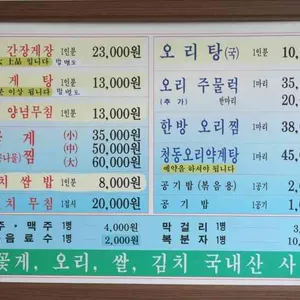 간장게장 1인분 23,000원
上品 입니다 밥 별도
게 탕 1인분 13,000원
이상 됩니다 밥 별도
양념무침 1인분 13,000원
게 (小) 35,000원
(中) 50,000원
찜 (大) 60,000원
치 쌈 밥 1인분 8,000원
치 무침 1접시 20,000원
주 · 맥주 1병 4,000원
음료수 1병 2,000원
오 리 탕 (국) 1인분 10,
오리 주물럭 1마리 35,
(추 가) 한마리 20,
한방 오리찜 1마리 38,
청동오리약계탕 1마리 45,
예약을 하셔야 됩니다
공기밥 (볶음용) 1공기 2,
공 기 밥 1공기 1,
막걸리 1병 3,
복분자 1병 10,
꽃게, 오리, 쌀, 김치 국내산 사